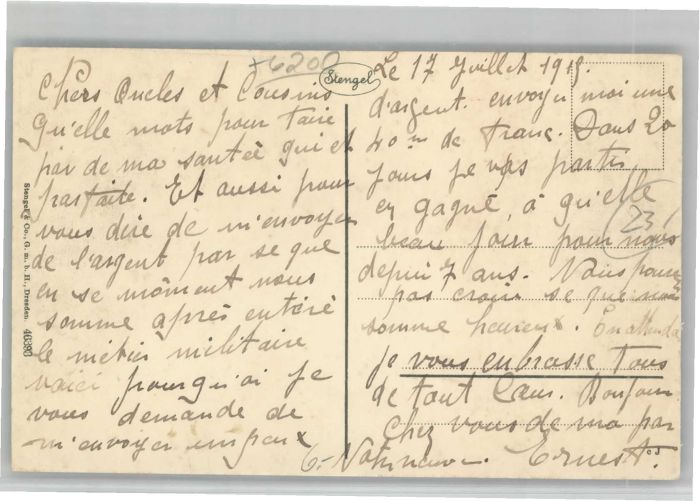 +6200
Stengel
Chers Oncles et Cousins
Qu'elle mots pour faire
par de ma santeé qui et
parfaite. Et aussi pour
vous dire de m'envoyer
de l'argent par se que
en se môment nous
somme après entéré
le métier militaire
voici pourqu'oi je
vous demande de
m'envoyer un peux
Le 17 Juillet 1915.
d'argent. envoyer moi une
40 ne de franc. Dans 20
jours je vais partir
en gagné, à qu'elle
beau jour pour nous
depui 7 ans. Vous pouvez
pas croir se que nous
somme heureux. En attendant
je vous enbrasse tous
de tout Cœur. Bonjour
Chez vous de ma par
Votre neveu. Ernest.
23
Stengel & Co., G. m. b. H., Dresden. 46390